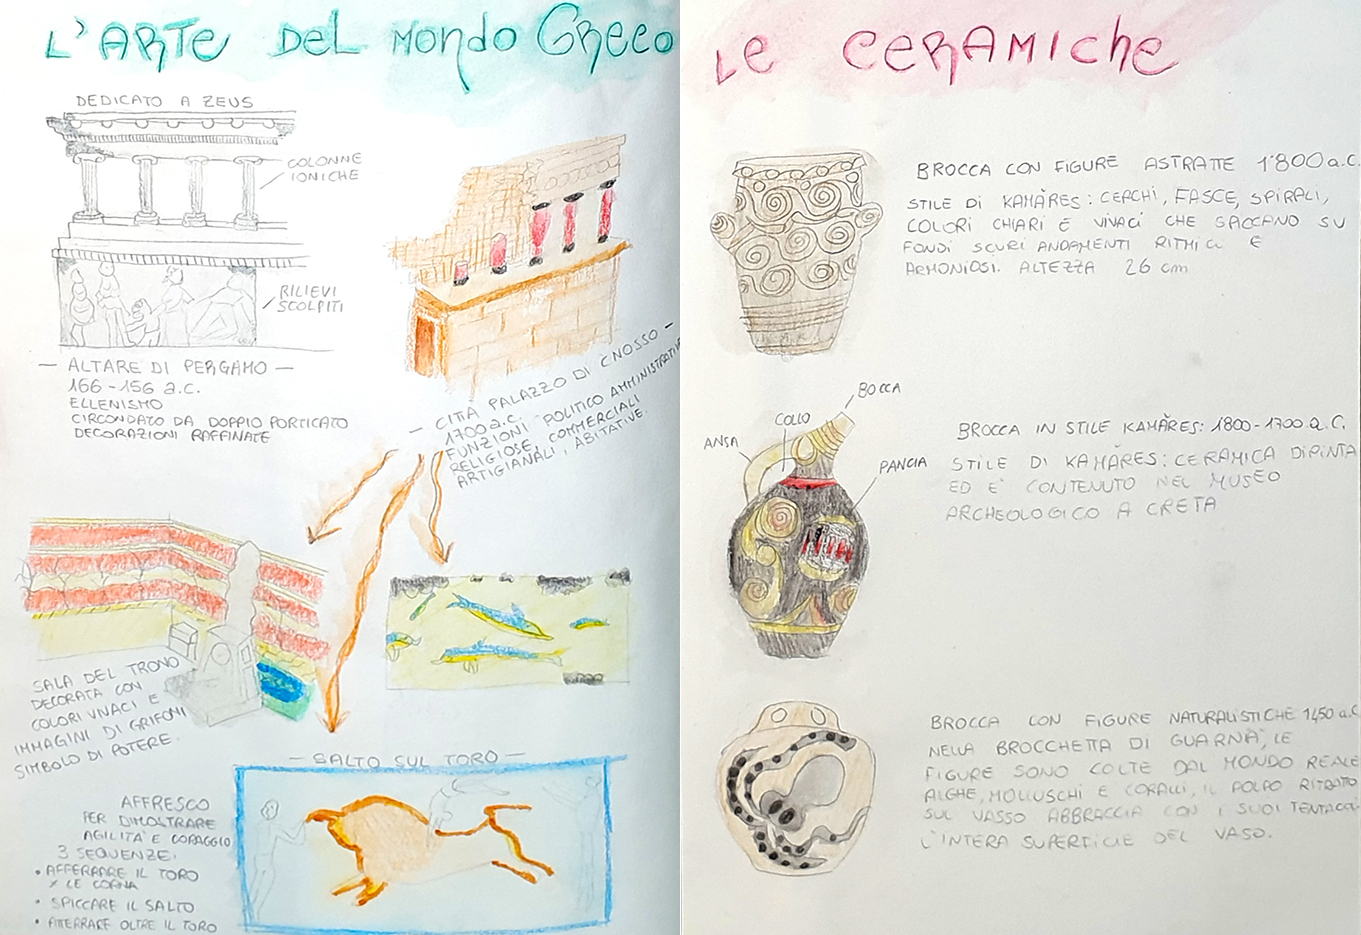 L'ARTE DEL MONDO GRECO
DEDICATO A ZEUS
COLONNE
IONICHE
RILIEVI
SCOLPITI
— ALTARE DI PERGAMO —
166-156 a.C.
ELLENISMO
CIRCONDATO DA DOPPIO PORTICATO
DECORAZIONI RAFFINATE
— CITTÀ PALAZZO DI CNOSSO —
1700 a.C.
FUNZIONI POLITICO AMMINISTRATIVE
RELIGIOSE, COMMERCIALI
ARTIGIANALI, ABITATIVE.
SALA DEL TRONO
DECORATA CON
COLORI VIVACI E
IMMAGINI DI GRIFONI
SIMBOLO DI POTERE.
— SALTO SUL TORO —
AFFRESCO
PER DIMOSTRARE
AGILITÀ E CORAGGIO
3 SEQUENZE:
• AFFERRARE IL TORO
X LE CORNA
• SPICCARE IL SALTO
• ATTERRARE OLTRE IL TORO
LE CERAMICHE
BROCCA CON FIGURE ASTRATTE 1'800 a.C.
STILE DI KAMÀRES: CERCHI, FASCE, SPIRALI,
COLORI CHIARI E VIVACI CHE SACCANO SU
FONDI SCURI ANDAMENTI RITMICI E
ARMONIOSI. ALTEZZA 26 cm
BOCCA
COLLO
ANSA
PANCIA
BROCCA IN STILE KAMÀRES: 1800-1700 a.C.
STILE DI KAMÀRES: CERAMICA DIPINTA
ED E' CONTENUTO NEL MUSEO
ARCHEOLOGICO A CRETA
BROCCA CON FIGURE NATURALISTICHE 1450 a.C
NELLA BROCCHETTA DI GUARNÀ, LE
FIGURE SONO COLTE DAL MONDO REALE
ALGHE, MOLLUSCHI E CORALLI, IL POLPO RITRATTO
SUL VASO ABBRACCIA CON I SUOI TENTACOLI
L'INTERA SUPERFICIE DEL VASO.